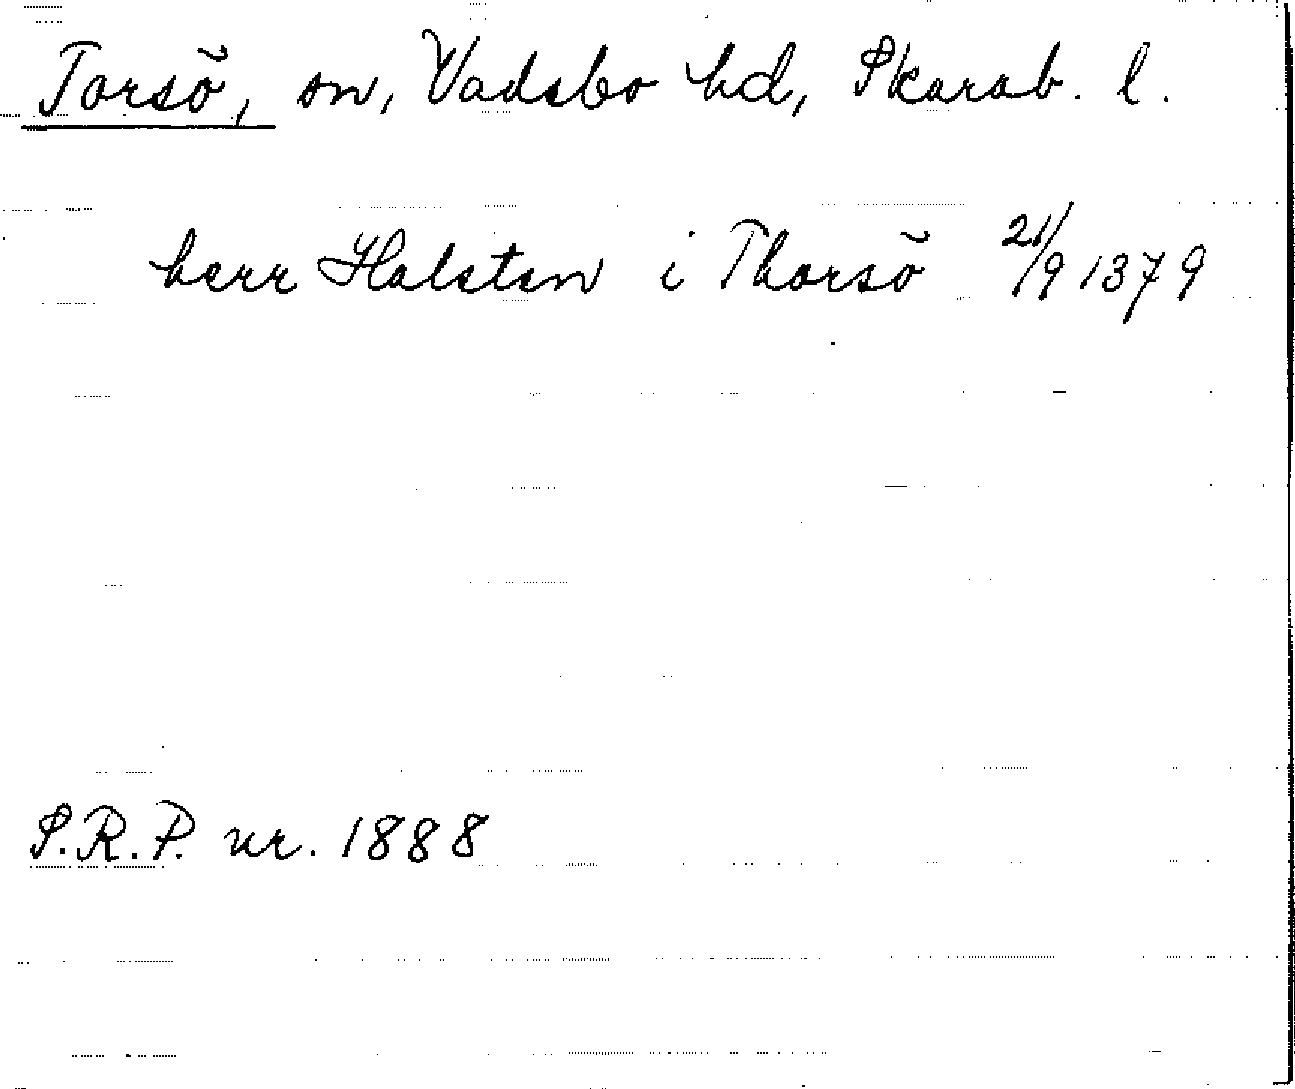 Torsö, sn, Vadsbo hd, Skarab. l.
herr Halsten i Thorsö 21/9 1379
S.R.P. nr. 1888